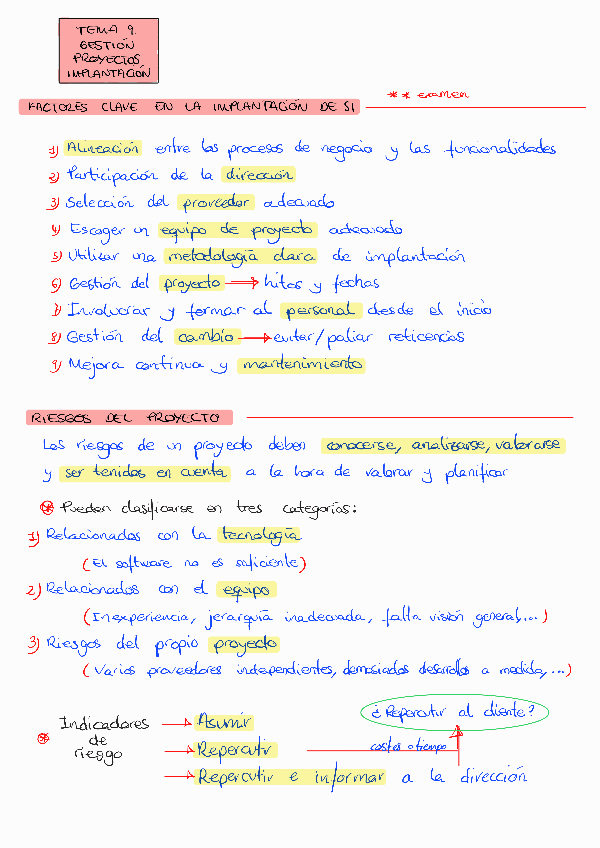 TEMA 9.
GESTIÓN
PROYECTOS
IMPLANTACIÓN
** examen
FACTORES CLAVE EN LA IMPLANTACIÓN DE SI
1) Alineación entre los procesos de negocio y las funcionalidades
2) Participación de la dirección
3) Selección del proveedor adecuado
4) Escoger un equipo de proyecto adecuado
5) Utilizar una metodología clara de implantación
6) Gestión del proyecto → hitos y fechas
7) Involucrar y formar al personal desde el inicio
8) Gestión del cambio → evitar/paliar reticencias
9) Mejora continua y mantenimiento
RIESGOS DEL PROYECTO
Los riesgos de un proyecto deben conocerse, analizarse, valorarse
y ser tenidos en cuenta a la hora de valorar y planificar
* Pueden clasificarse en tres categorías:
1) Relacionados con la tecnología
(El software no es suficiente)
2) Relacionados con el equipo
(Inexperiencia, jerarquía inadecuada, falta visión general,...)
3) Riesgos del propio proyecto
(Varios proveedores independientes, demasiados desarrollos a medida,...)
* Indicadores de riesgo
→ Asumir
→ Repercutir
costes o tiempo
¿Repercutir al cliente?
→ Repercutir e informar a la dirección